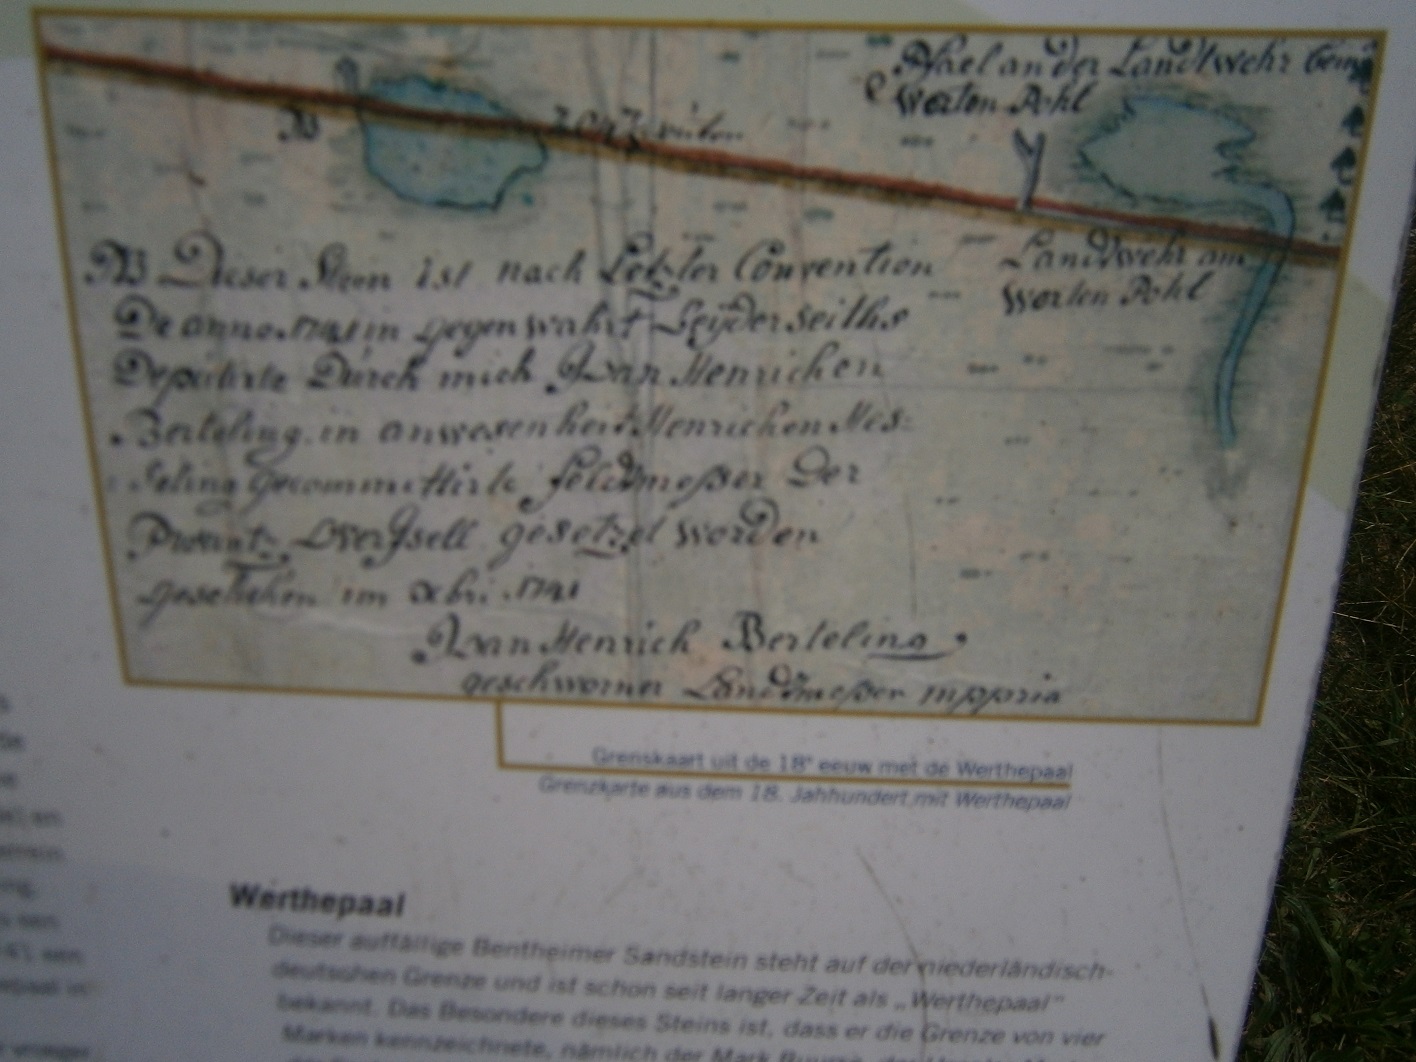 Pfael an der Landtwehr
Worten Pohl
NB
Landtwehr am
Worten Pohl
NB Dieser Stein ist nach Letzter Convention
De anno 1741 in gegenwahrt Beÿderseiths
Deputirte Durch mich Jwan Henrichen
Berteling in anwesenheit Henrichen Mes=
seling Gecommittirte feldmeßer Der
Provintz overÿsell gesetzet worden
geschehen im xbri. 1741
Jwan Henrich Berteling
geschworner Landtmeßer mppria
Grenskaart uit de 18e eeuw met de Werthepaal
Grenzkarte aus dem 18. Jahhundert mit Werthepaal
Werthepaal
Dieser auffällige Bentheimer Sandstein steht auf der niederländisch-
deutschen Grenze und ist schon seit langer Zeit als „Werthepaal"
bekannt. Das Besondere dieses Steins ist, dass er die Grenze von vier
Marken kennzeichnete, nämlich der Mark